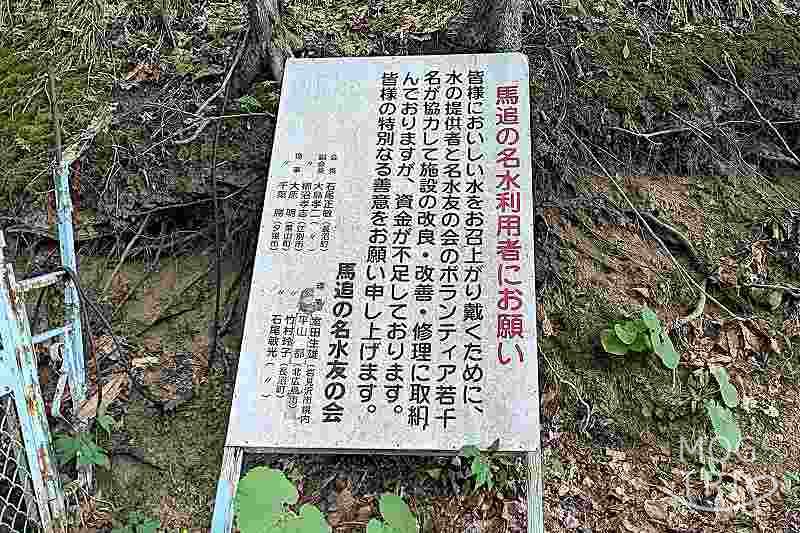 馬追の名水利用者にお願い
皆様においしい水をお召上がり戴くために、
水の提供者と名水友の会のボランティア若干
名が協力して施設の改良・改善・修理に取組
んでおりますが、資金が不足しております。
皆様の特別なる善意をお願い申し上げます。
馬追の名水友の会
会長 石尾正敏（長沼町）
副会長 大島孝二（〃）
理事 柿沼孝志（江別市）
〃 大原 明（栗山町）
千葉 勝（夕張市）
理事 室田生雄（岩見沢市幌内
〃 平山 都（北広島市）
〃 竹村玲子（長沼町）
石尾敏光（〃）
MOG'S
TRIP